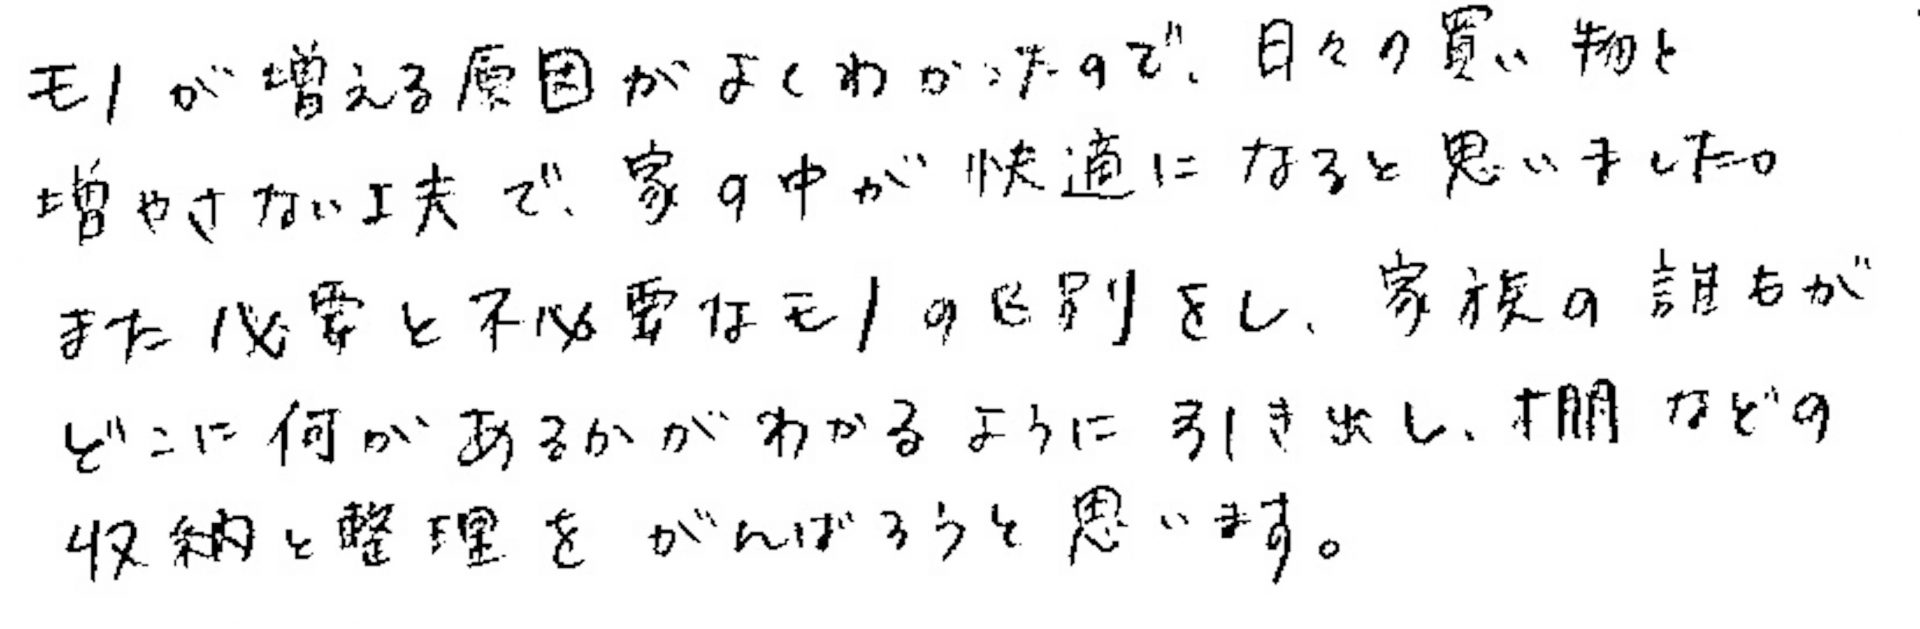 モノが増える原因がよくわかったので、日々の買い物と
増やさない工夫で、家の中が快適になると思いました。
また必要と不必要なモノの区別をし、家族の誰もが
どこに何があるかがわかるように引き出し、棚などの
収納と整理をがんばろうと思います。